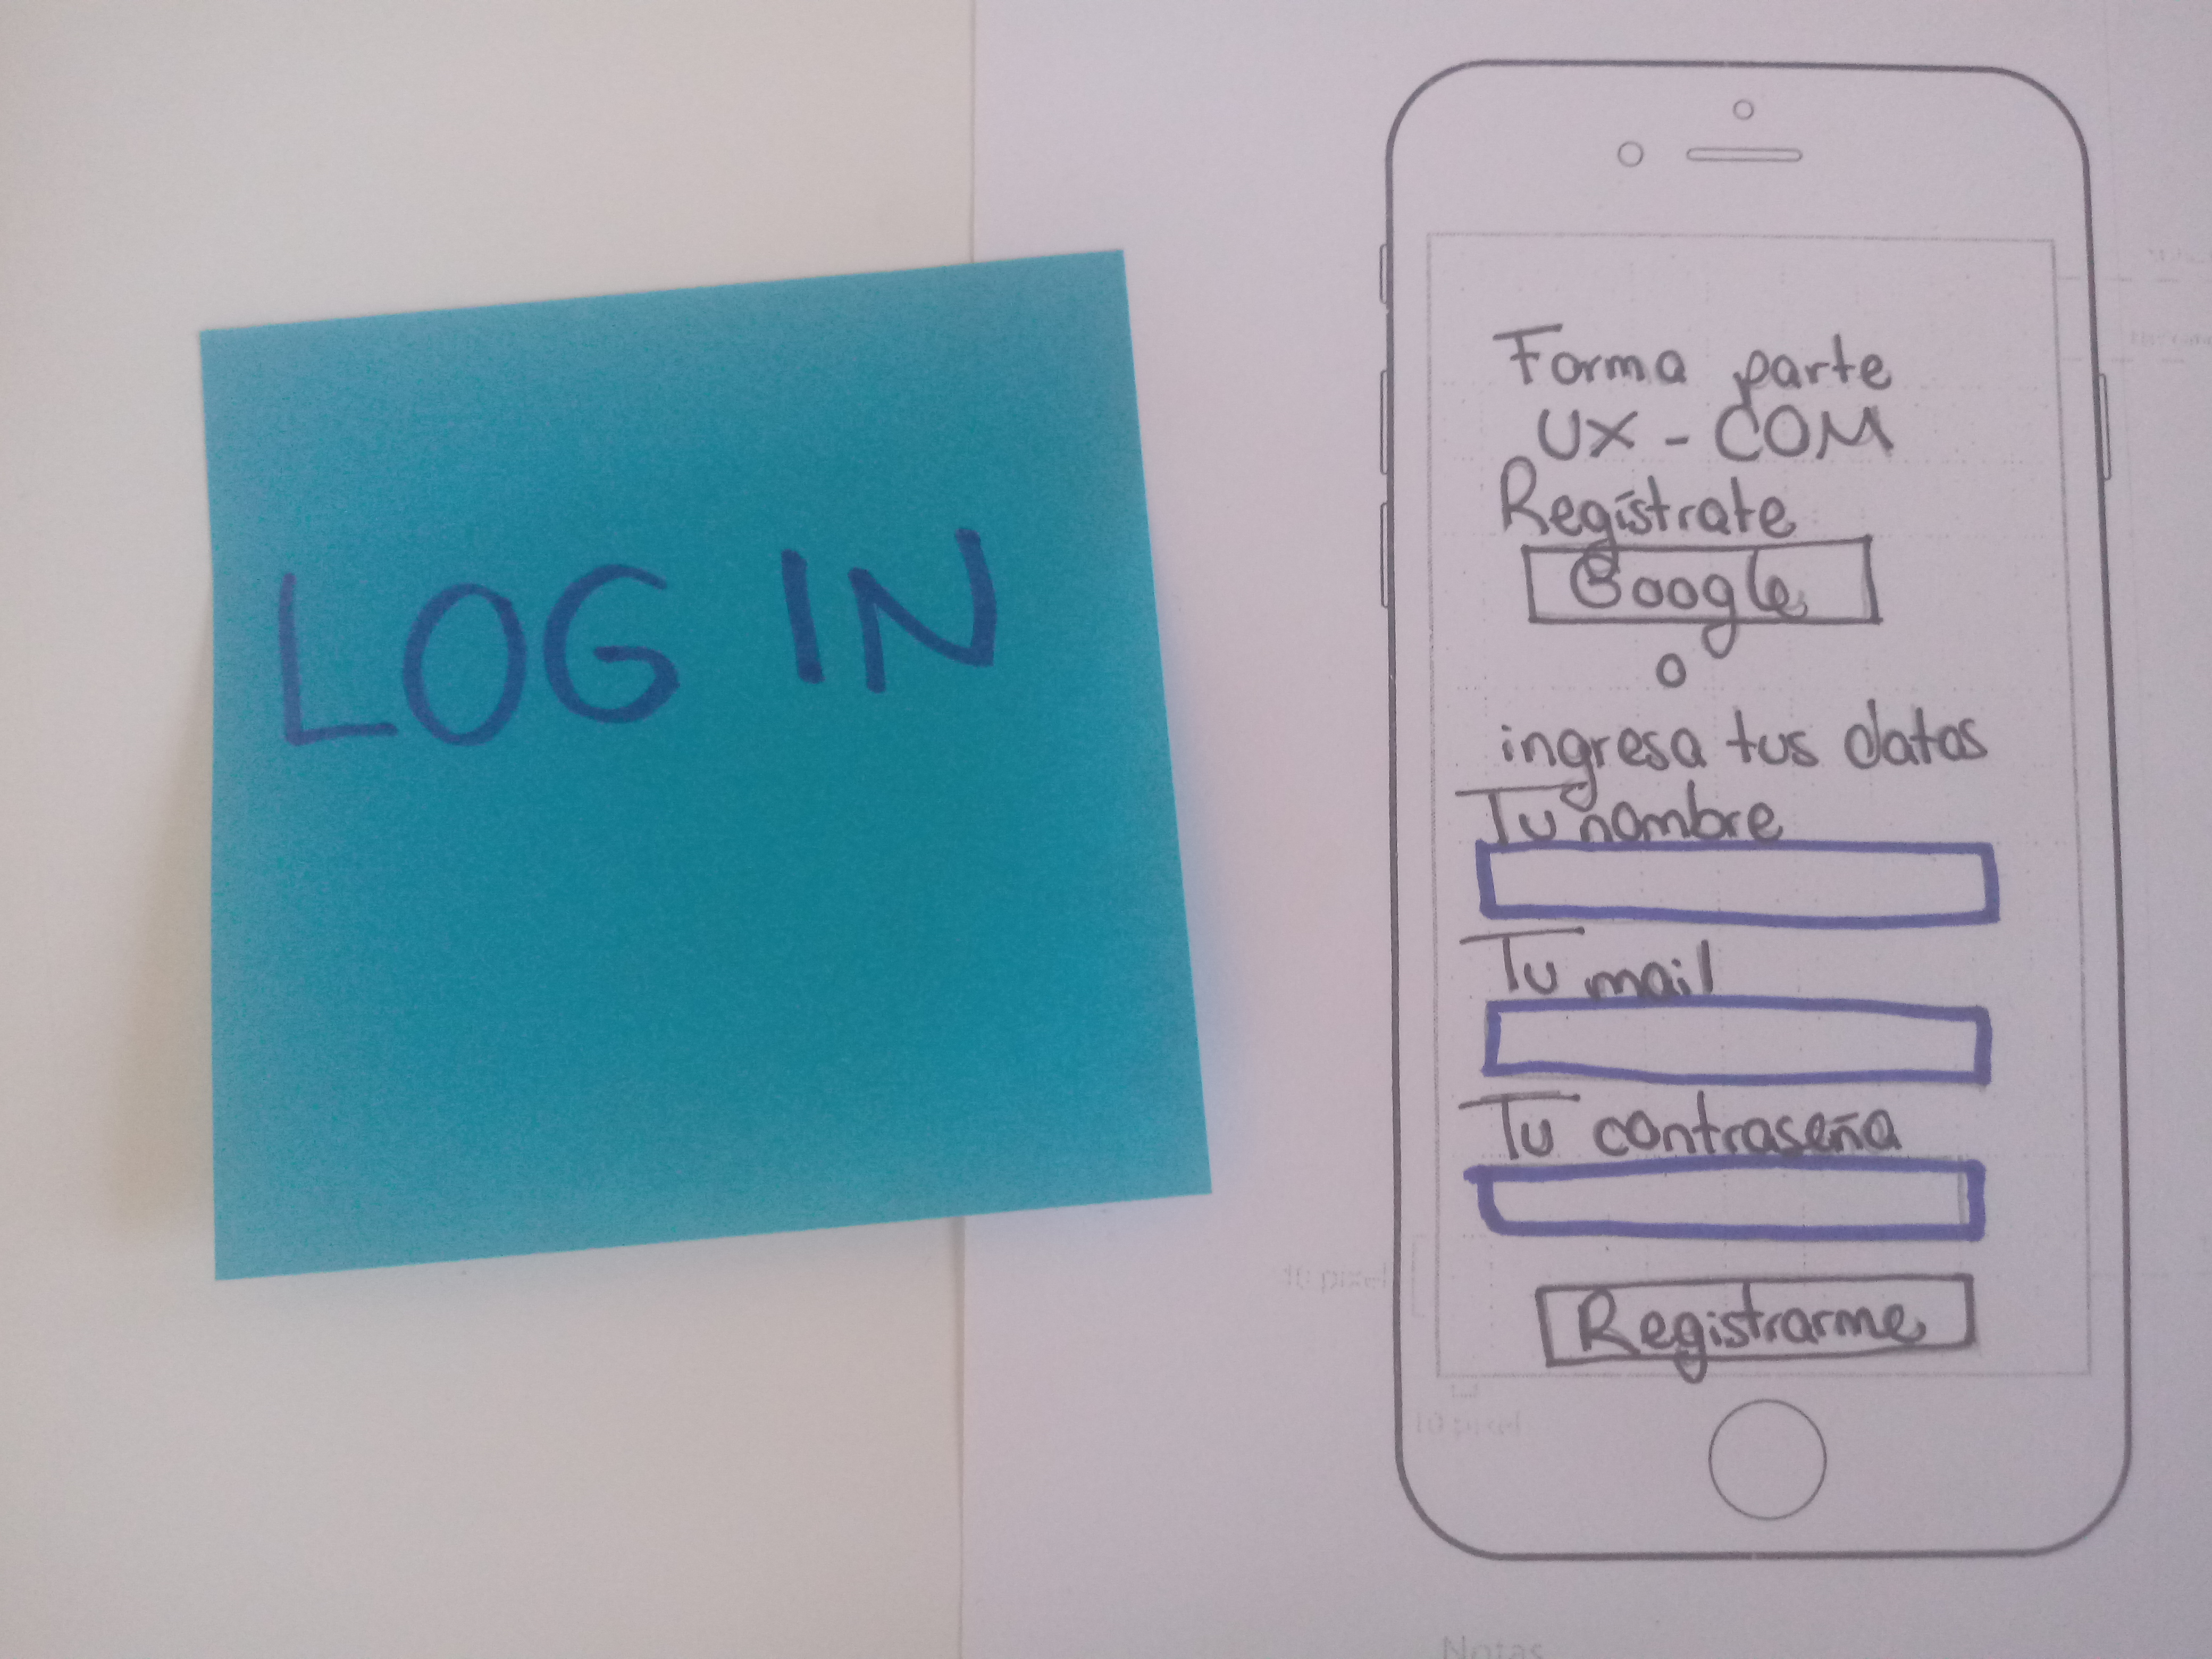 LOG IN
Forma parte
UX - COM
Regístrate
Google
o
ingresa tus datos
Tu nombre
Tu mail
Tu contraseña
Registrarme
10 pixel
10 pixel
Notas